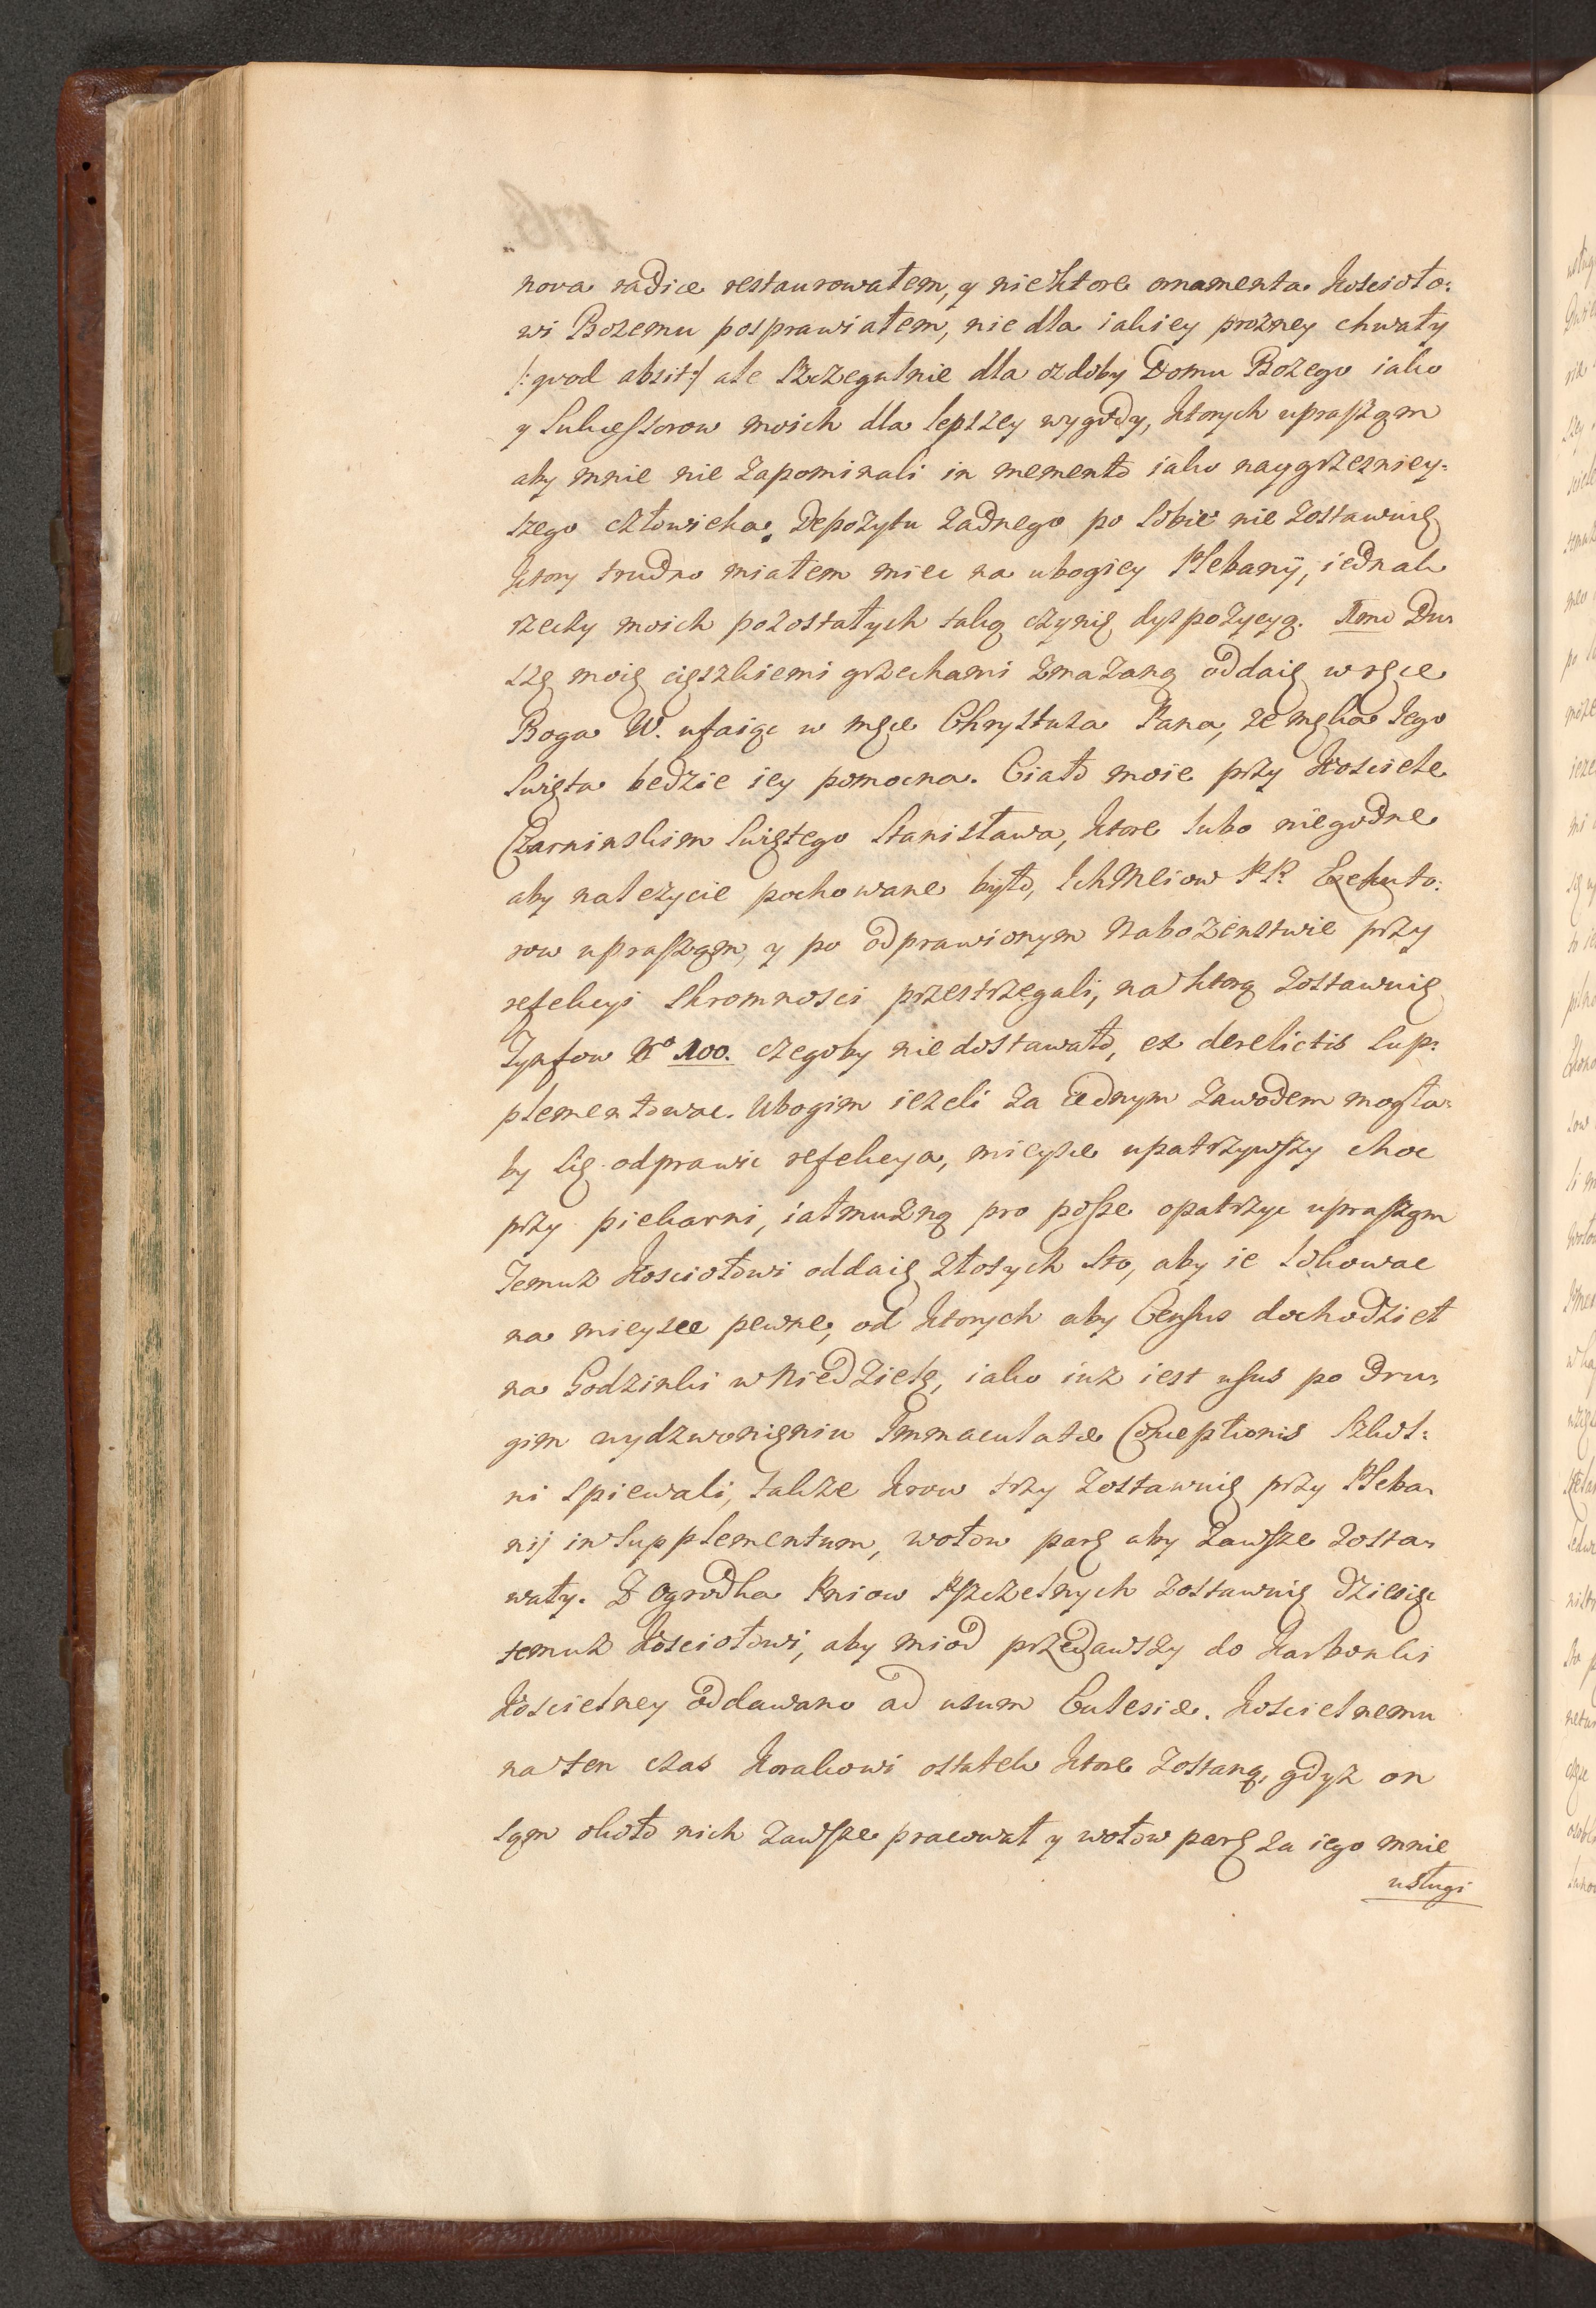 nova radice restaurowałem, y niektore ornamenta Koscioło:
wi Bozemu posprawiałem, nie dla iakiey prozney chwały
/: quod absit :/ ale szczegulnie dla ozdoby Domu Bozego iako
y Sukcessorow moich dla lepszey wygody, ktorych upraszam
aby mnie nie zapominali in memento iako naygrzezniey:
szego człowieka. Depozytu zadnego po sobie nie zostawuię
ktory trudno miałem miec na ubogiey Plebanÿ, iednak
rzeczy moich pozostałych taką czynię dyspozycyą. 1mo Du:
szę moię cięszkiemi grzechami zmazaną oddaię w ręce
Boga W. ufaiąc w męce Chrystusa Pana, ze męka Jego
swięta bedzie iey pomocna. Ciało moie przy Kosciele
Czarninskim Swiętego Stanisława, ktore lubo niegodne
aby nalezycie pochowane było, IchMciow PP. Exekuto:
row upraszam, y po odprawionym nabozenstwie przy
refekcyi skromnosci przestrzegali, na ktorą zostawuię
Tynfow No 100. czegoby nie dostawało, ex derelictis sup:
plementowac. Ubogim iezeli za iednym zawodem mogła:
by się odprawic refekcya, mieysce upatrzywszy choc
przy piekarni, iałmuzną pro posse opatrzyc upraszam
Temuz Kosciołowi oddaię złotych sto, aby ie lokowac
na mieysce pewne, od ktorych aby Census dochodził
na Godzinki w Niedzielę, iako iuz iest usus po dru:
gim wydzwonięniu Immaculatæ Conceptionis Szkol:
ni spiewali, takze krow trzy zostawuię przy Pleba:
nij in supplementum, wołow parę aby zawsze zosta:
wały. Z Ogrodka Pniow Pszczelnych zostawuię dziesięc
temuz Kosciołowi, aby miod przedawszy do Karbonki
Koscielney oddawano ad usum Eclesiæ. Koscielnemu
na ten czas Korakowi ostatek ktore zostaną, gdyz on
sam około nich zawsze pracował y wołow parę za iego mnie
usługi